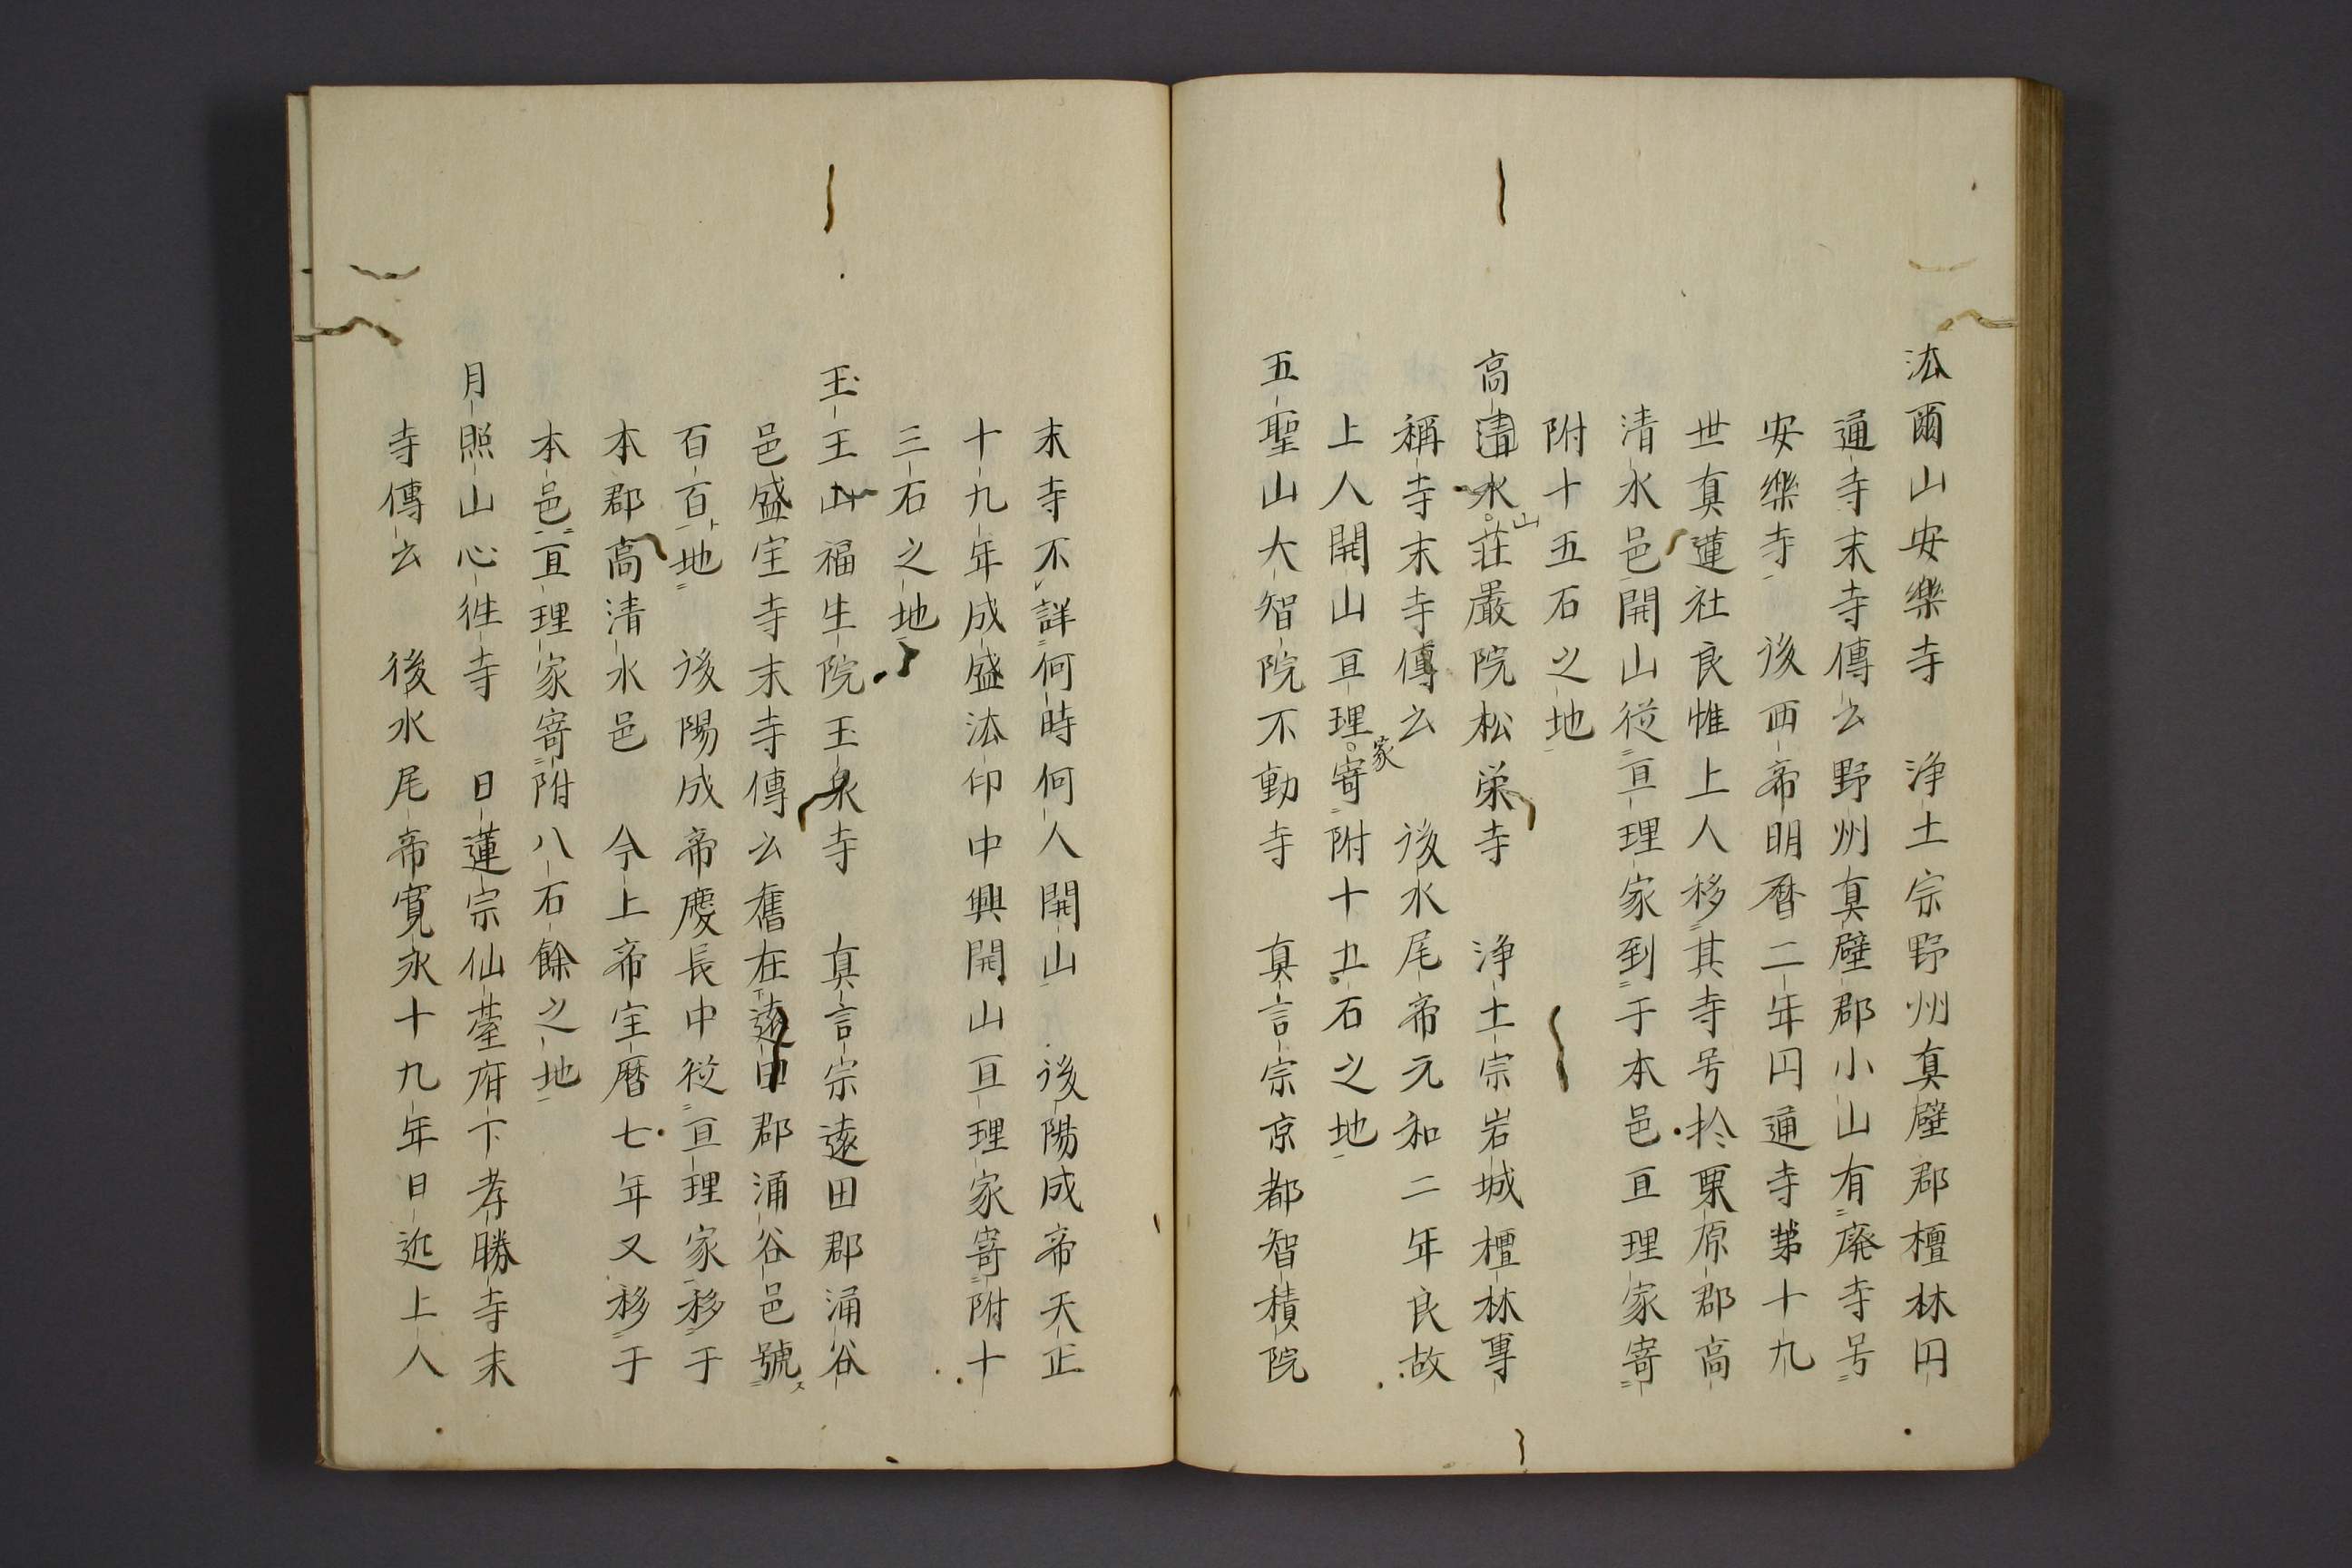 法爾山安樂寺　浄土宗野州真壁郡檀林円
通寺末寺傳云野州真壁郡小山有廃寺号
安樂寺　後西帝明暦二年円通寺第十九
世真蓮社良惟上人移其寺号於栗原郡高
清水邑開山従亘理家到于本邑亘理家寄
附十五石之地
高清水山荘嚴院松栄寺　浄土宗岩城檀林専
稱寺末寺傳云　後水尾帝元和二年良故
上人開山亘理家寄附十五石之地
五聖山大智院不動寺　真言宗京都智積院
末寺不詳何時何人開山　後陽成帝天正
十九年成盛法印中興開山亘理家寄附十
三石之地
玉王山福生院玉泉寺　真言宗遠田郡涌谷
邑盛宝寺末寺傳云舊在遠田郡涌谷邑號
百百地　後陽成帝慶長中従亘理家移于
本郡高清水邑　今上帝宝暦七年又移于
本邑亘理家寄附八石餘之地
月照山心徃寺　日蓮宗仙臺府下孝勝寺末
寺傳云　後水尾帝寛永十九年日近上人